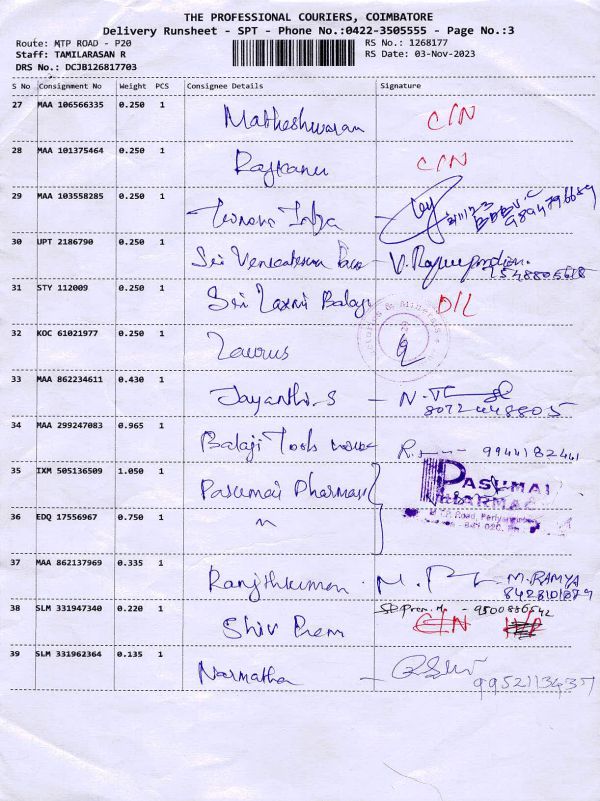 THE PROFESSIONAL COURIERS, COIMBATORE
Delivery Runsheet - SPT - Phone No.:0422-3505555 - Page No.:3
Route: MTP ROAD - P20
RS No.: 1268177
Staff: TAMILARASAN R
RS Date: 03-Nov-2023
DRS No.: DCJB126817703
S No Consignment No Weight PCS Consignee Details Signature
27 MAA 106566335 0.250 1 Matheshwaran C/N
28 MAA 101375464 0.250 1 Rajkanu C/N
29 MAA 103558285 0.250 1
30 UPT 2186790 0.250 1 Sri Venkateswara
31 STY 112009 0.250 1 Sri Laxmi Balaji D/L
32 KOC 61021977 0.250 1 Laurus
33 MAA 862234611 0.430 1 Jayanthi.S
34 MAA 299247083 0.965 1 Balaji Tools 9944182441
35 IXM 505136509 1.050 1 Pasumai Pharmacy PASUMAI
PHARMACY
M.T.P. Road,
36 EDQ 17556967 0.750 1 "
37 MAA 862137969 0.335 1 Ranjithkumar M. RAMYA
8428101879
38 SLM 331947340 0.220 1 Shiv Prem 9500886642
C/N
39 SLM 331962364 0.135 1 Narmatha
9952113437